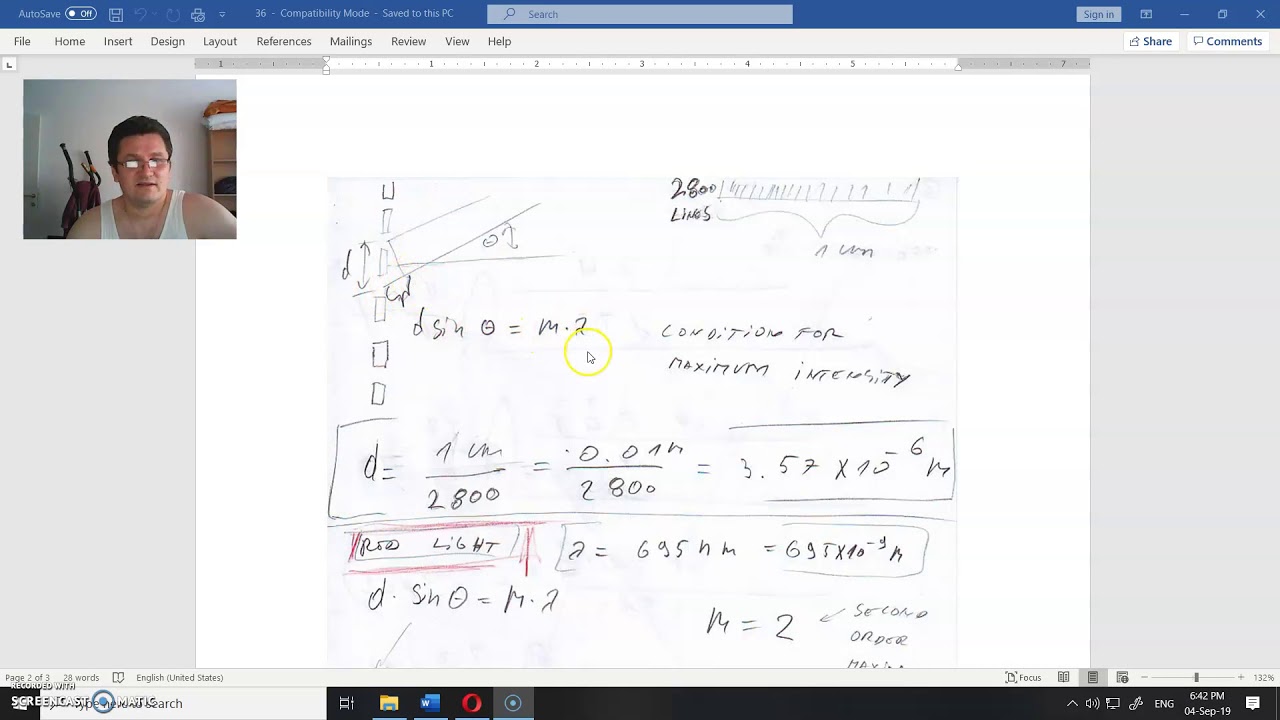 AutoSave Off 36 - Compatibility Mode - Saved to this PC Search Sign in
File Home Insert Design Layout References Mailings Review View Help Share Comments
1 1 2 3 4 5 7
2800
LINES
1 cm
θ
d
d sin θ = m·λ
CONDITION FOR
MAXIMUM INTENSITY
d = 1 cm / 2800 = 0.01m / 2800 = 3.57 x 10-6 m
RED LIGHT λ = 695 nm = 695x10-9 m
d · sin θ = m·λ
m = 2 SECOND
ORDER
Page 2 of 3 28 words English (United States) Focus 132%
RECORDED WITH
SCREENCAST MATIC
here to search
ENG 6:42 PM
04-Sep-19